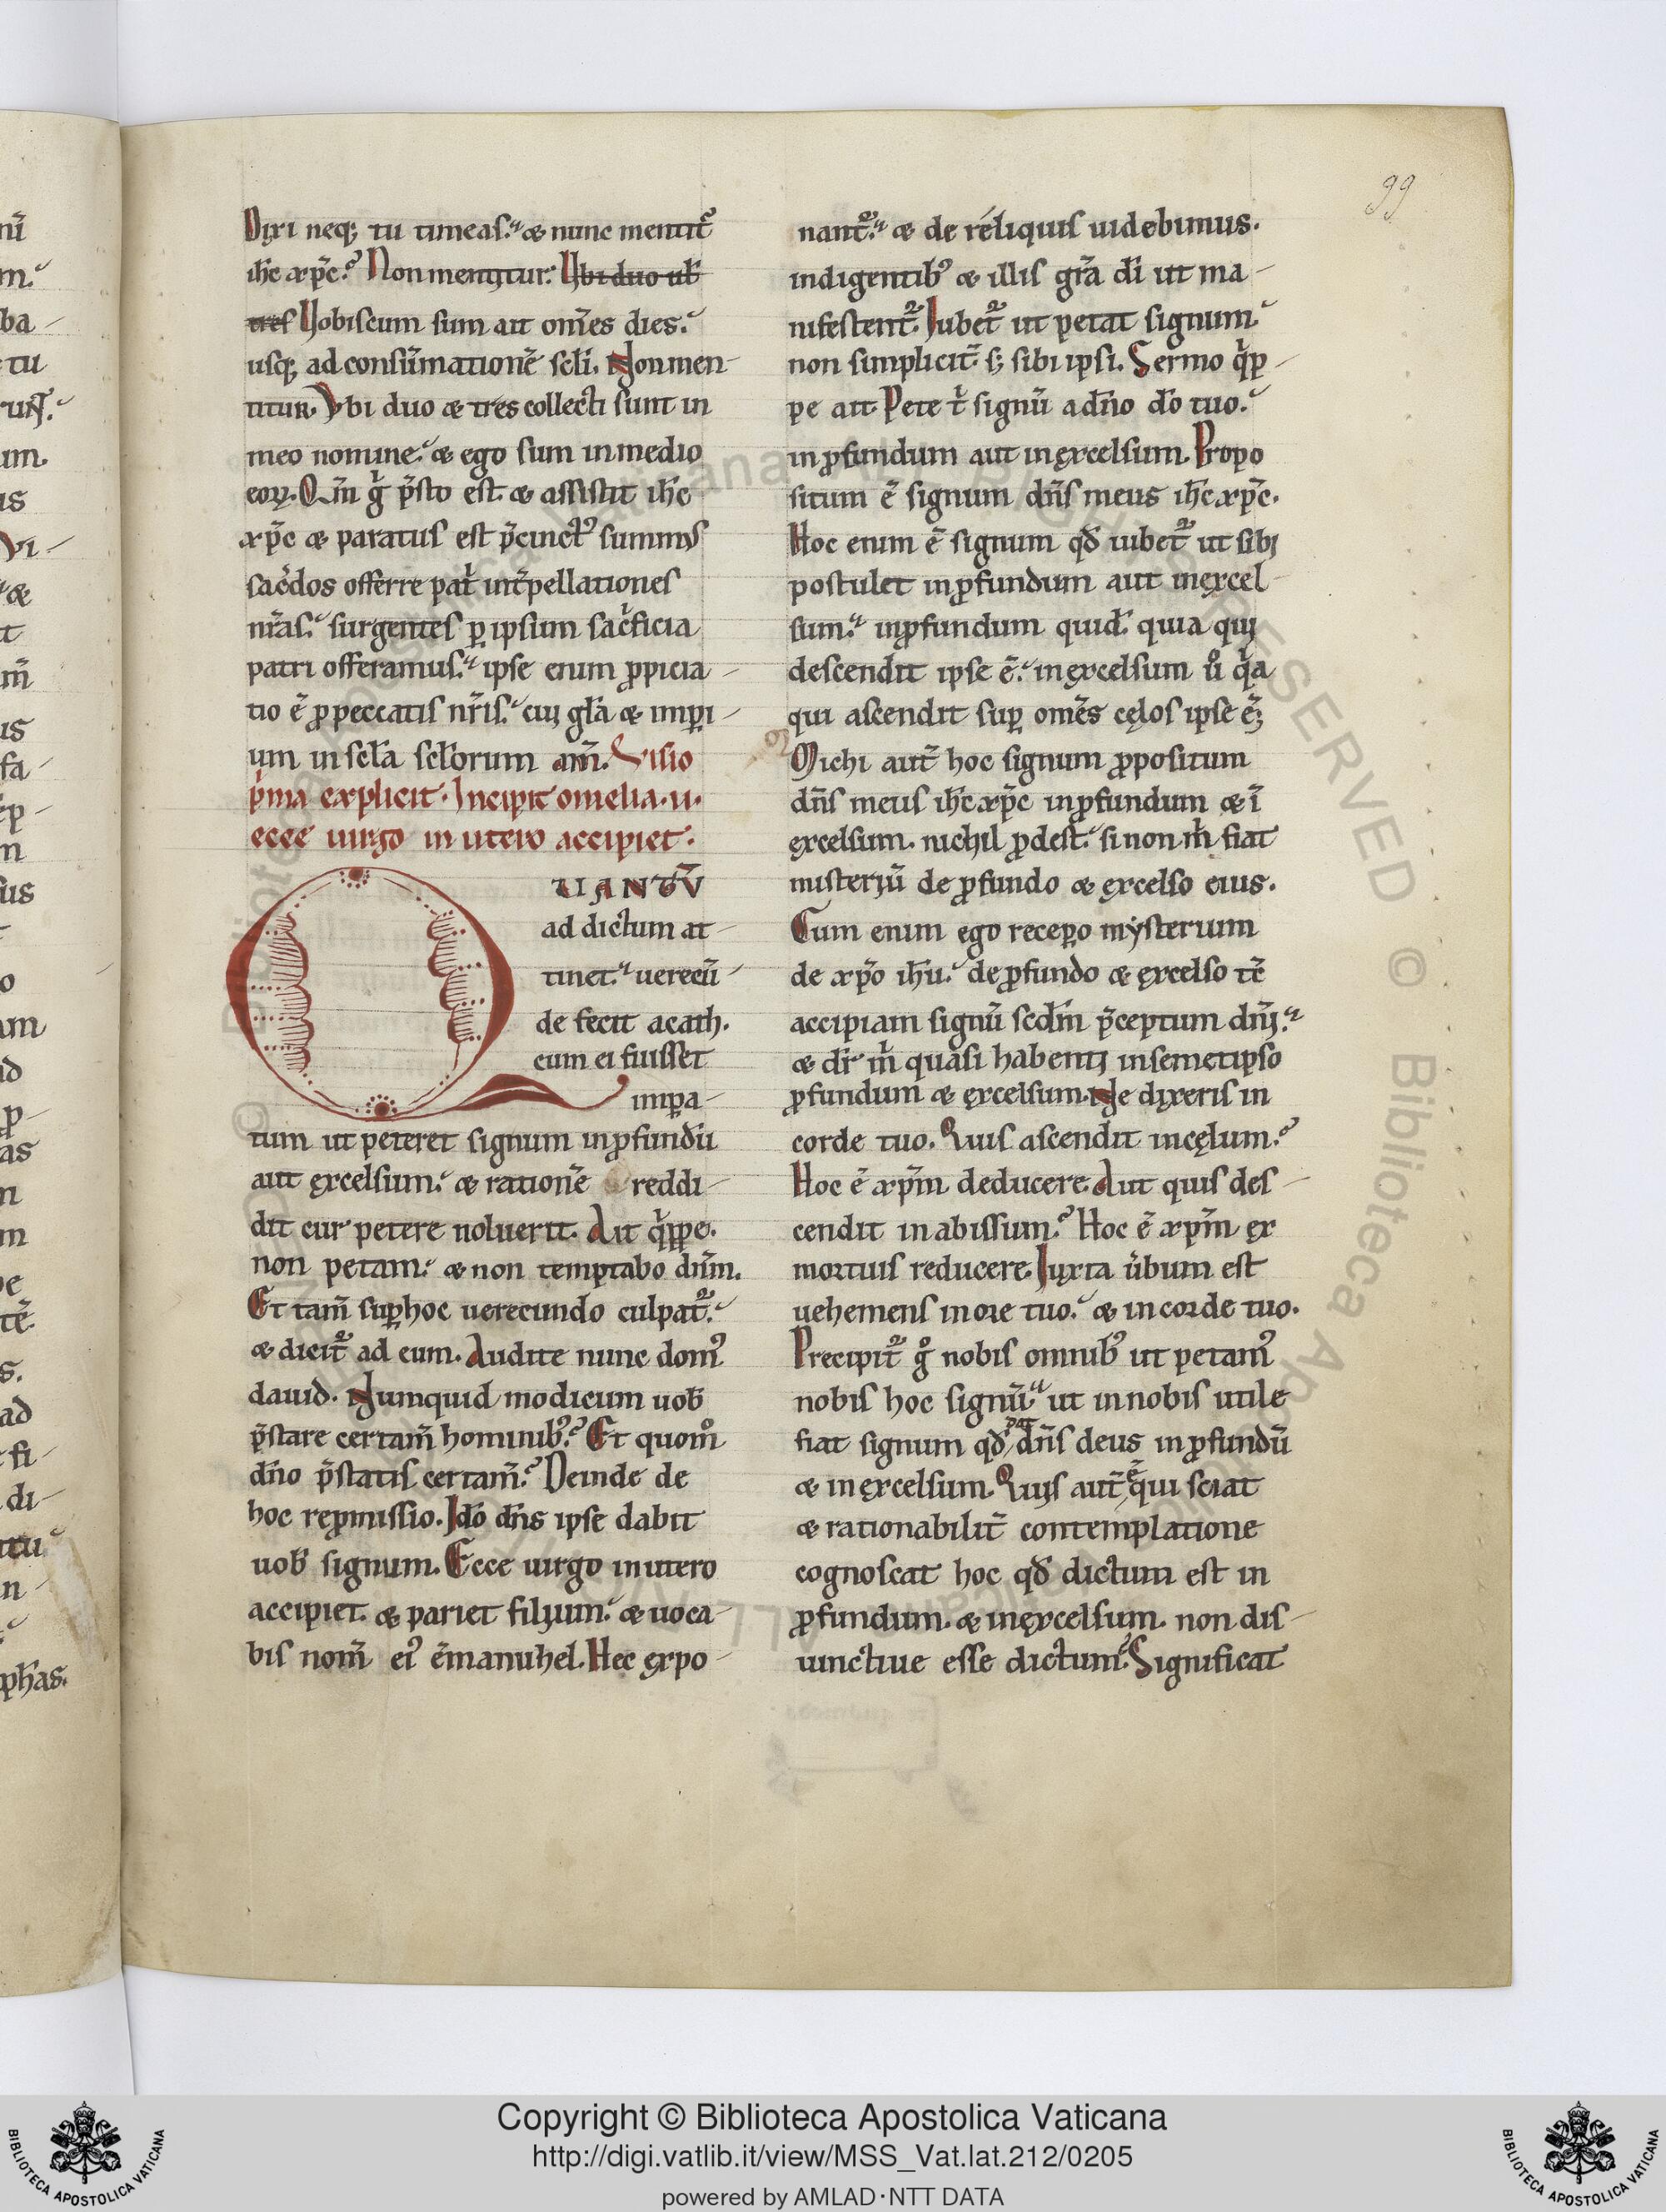 99
Dixi neq; tu timeas. & nunc mentit᷑
ih̅c xp̅c? Non mentitur. Ubi duo ul̅
tres Uobiscum sum ait om̅es dies.
usq; ad consu̅matione̅ sc̅li. Non men-
titur. Vbi duo & tres collecti sunt in
meo nomine. & ego sum in medio
eoꝝ. Qm̅ g̊ p̅sto est. & assistit ih̅c
xp̅c & paratus est p̅cinctꝰ summus
sac̅dos offerre pat̅ int̅pellationes
nr̅as. surgentes ꝑ ipsum sac̅ficia
patri offeramus. ipse enim ꝓpicia-
tio e̅ ꝓ peccatis nr̅is. cui gl̅a & impi-
um in sc̅la sc̅lorum am̅. Visio
p̅ma explicit. Incipit omelia. ii.
ecce uirgo in utero accipiet.
QUANTV̅
ad dictum at-
tinet. uerecu̅-
de fecit acath.
cum ei fuisset
impa-
tum ut peteret signum in ꝓfundu̅
aut excelsum. & ratione̅ reddi-
dit cur petere noluerit. Ait q̅ppe.
non petam. & non temptabo dn̅m.
Et tam̅ suꝑ hoc uerecundo culpat᷑.
& dicit᷑ ad eum. Audite nunc domꝰ
dauid. Numquid modicum uob̅
p̅stare certam̅ hominibꝰ? Et quom̊
dn̅o p̅statis certam̅? Deinde de
hoc repmissio. Ido̅ dn̅s ipse dabit
uob̅ signum. Ecce uirgo in utero
accipiet. & pariet filium. & uoca-
bis nom̅ eiꝰ e̅manuhel. Hec expo-
nant᷑. & de réliquis uidebimus.
indigentibꝰ & illis gr̅a di̅ ut ma-
nifestent᷑. Iubet᷑ ut petat signum
non simplicit̅ s; sibi ipsi. Sermo q̅p-
pe ait. Pete t̅ signu̅ a dn̅o do̅ tuo.
in ꝓfundum aut in excelsum. Propo
situm e̅ signum dn̅s meus ih̅c xp̅c.
Hoc enim e̅ signum qd̅ iubet᷑ ut sibi
postulet in ꝓfundum aut in excel-
sum. in ꝓfundum quid̅. quia qui
descendit ipse e̅. in excelsum ů q̅a
qui ascendit suꝑ om̅es cęlos ipse e̅;
Michi aut̅ hoc signum ꝓpositum
dn̅s meus ih̅c xp̅c in ꝓfundum & i̅
excelsum. nichil ꝓdest. si non m̅ fiat
misteriu̅ de ꝓfundo & excelso eius.
Cum enim ego recepo mẏsterium
de xp̅o ih̅u. de ꝓfundo & excelso te̅
accipiam signu̅ scdm̅ p̅ceptum dn̅i.
& dr̅ m̅ quasi habenti in semetipso
ꝓfundum & excelsum. Ne dixeris in
corde tuo. Quis ascendit in cęlum?
Hoc e̅ xp̅m deducere. Aut quis des-
cendit in abissum? Hoc e̅ xp̅m ex
mortuis reducere. Iuxta u̅bum est
uehemens in ore tuo. & in corde tuo.
Precipit᷑ g̊ nobis omnibꝰ ut petamꝰ
nobis hoc signu̅. ut in nobis utile
fiat signum qd̅ dn̅s deus in ꝓfundu̅
& in excelsum. Quis aut̅ e̅ qui sciat
& rationabilit̅ contemplatione
cognoscat hoc qd̅ dictum est in
ꝓfundum. & in excelsum. non dis-
iunctiue esse dictum? Significat
Copyright © Biblioteca Apostolica Vaticana
http://digi.vatlib.it/view/MSS_Vat.lat.212/0205
powered by AMLAD·NTT DATA
BIBLIOTECA APOSTOLICA VATICANA
BIBLIOTECA APOSTOLICA VATICANA